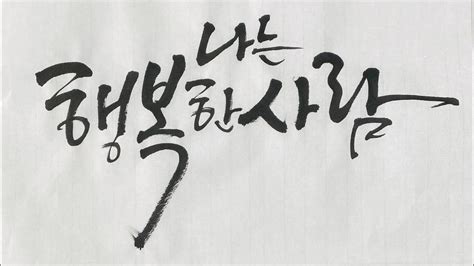 나는
행복한사람